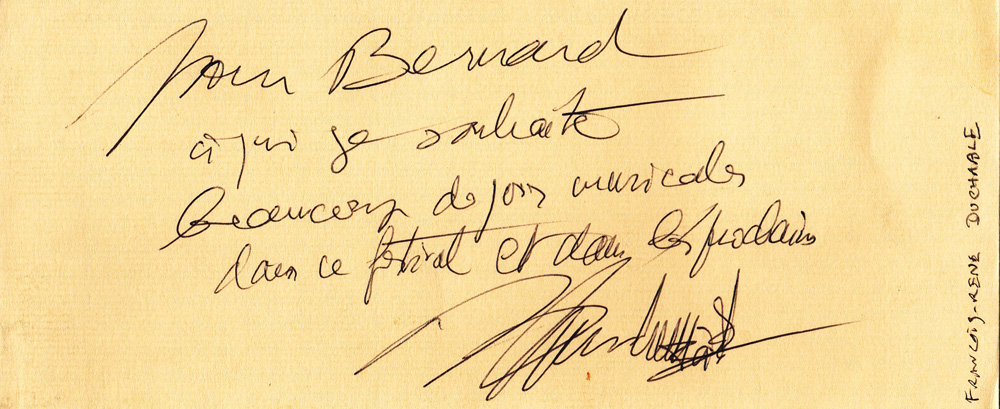 Pour Bernard
à qui je souhaite
beaucoup de joies musicales
dans ce festival et dans les prochains
FRANÇOIS-RENÉ DUCHABLE